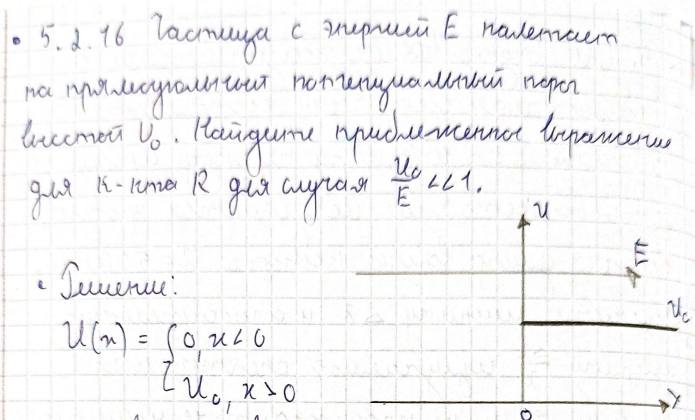 • 5.2.16 Частица с энергией E налетает
на прямоугольный потенциальный порог
высотой U₀. Найдите приближенное выражение
для к-нта R для случая U₀/E <<1.
U
E
• Решение:
U₀
U(x) = { 0, x < 0
U₀, x > 0
x
0